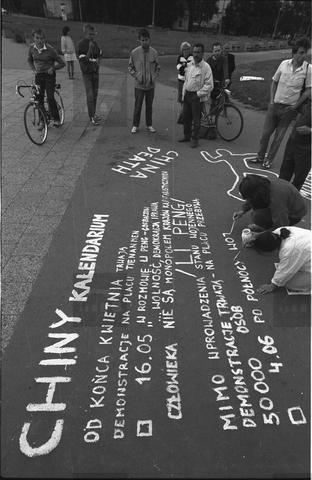 CHINY KALENDARIUM
OD KOŃCA KWIETNIA TRWAJĄ
DEMONSTRACJE NA PLACU TIENANMEN
16.05 „W ROZMOWIE LI PENG - GORBACZOW
„WOLNOŚĆ, DEMOKRACJA I PRAWA
CZŁOWIEKA NIE SĄ MONOPOLEM KRAJÓW KAPITALISTYCZNYCH
/LI PENG/
MIMO WPROWADZENIA STANU WOJENNEGO
DEMONSTRACJE TRWAJĄ - NA PLACU PRZEBYWA
50000 OSÓB
4.06 PO PÓŁNOCY
CHINA
DEATH